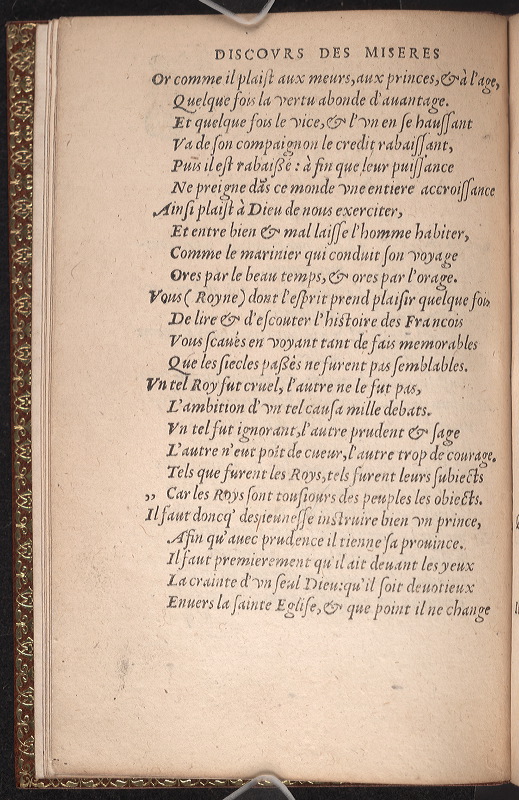 DISCOVRS DES MISERES
Or comme il plaiſt aux meurs,aux princes,& à l'age,
Quelque fois la vertu abonde d'auantage.
Et quelque fois le vice,& l'vn en ſe hauſſant
Va de ſon compaignon le credit rabaiſſant,
Puis il eſt rabaißé : à fin que leur puiſſance
Ne preigne dãs ce monde vne entiere accroiſſance
Ainſi plaiſt à Dieu de nous exerciter,
Et entre bien & mal laiſſe l'homme habiter,
Comme le marinier qui conduit ſon voyage
Ores par le beau temps,& ores par l'orage.
Vous ( Royne) dont l'eſprit prend plaiſir quelque fois
De lire & d'eſcouter l'hiſtoire des Francois
Vous ſcaués en voyant tant de fais memorables
Que les ſiecles paßés ne furent pas ſemblables.
Vn tel Roy fut cruel, l'autre ne le fut pas,
L'ambition d'vn tel cauſa mille debats.
Vn tel fut ignorant,l'autre prudent & ſage
L'autre n'eut poĩt de cueur,l'autre trop de courage.
Tels que furent les Roys,tels furent leurs ſubiects
,, Car les Roys ſont touſiours des peuples les obiects.
Il faut doncq' des jeuneſſe inſtruire bien vn prince,
Afin qu'auec prudence il tienne ſa prouince.
Il faut premierement qu'il ait deuant les yeux
La crainte d'vn ſeal Dieu:qu'il ſoit deuotieux
Enuers la ſainte Egliſe,& que point il ne change